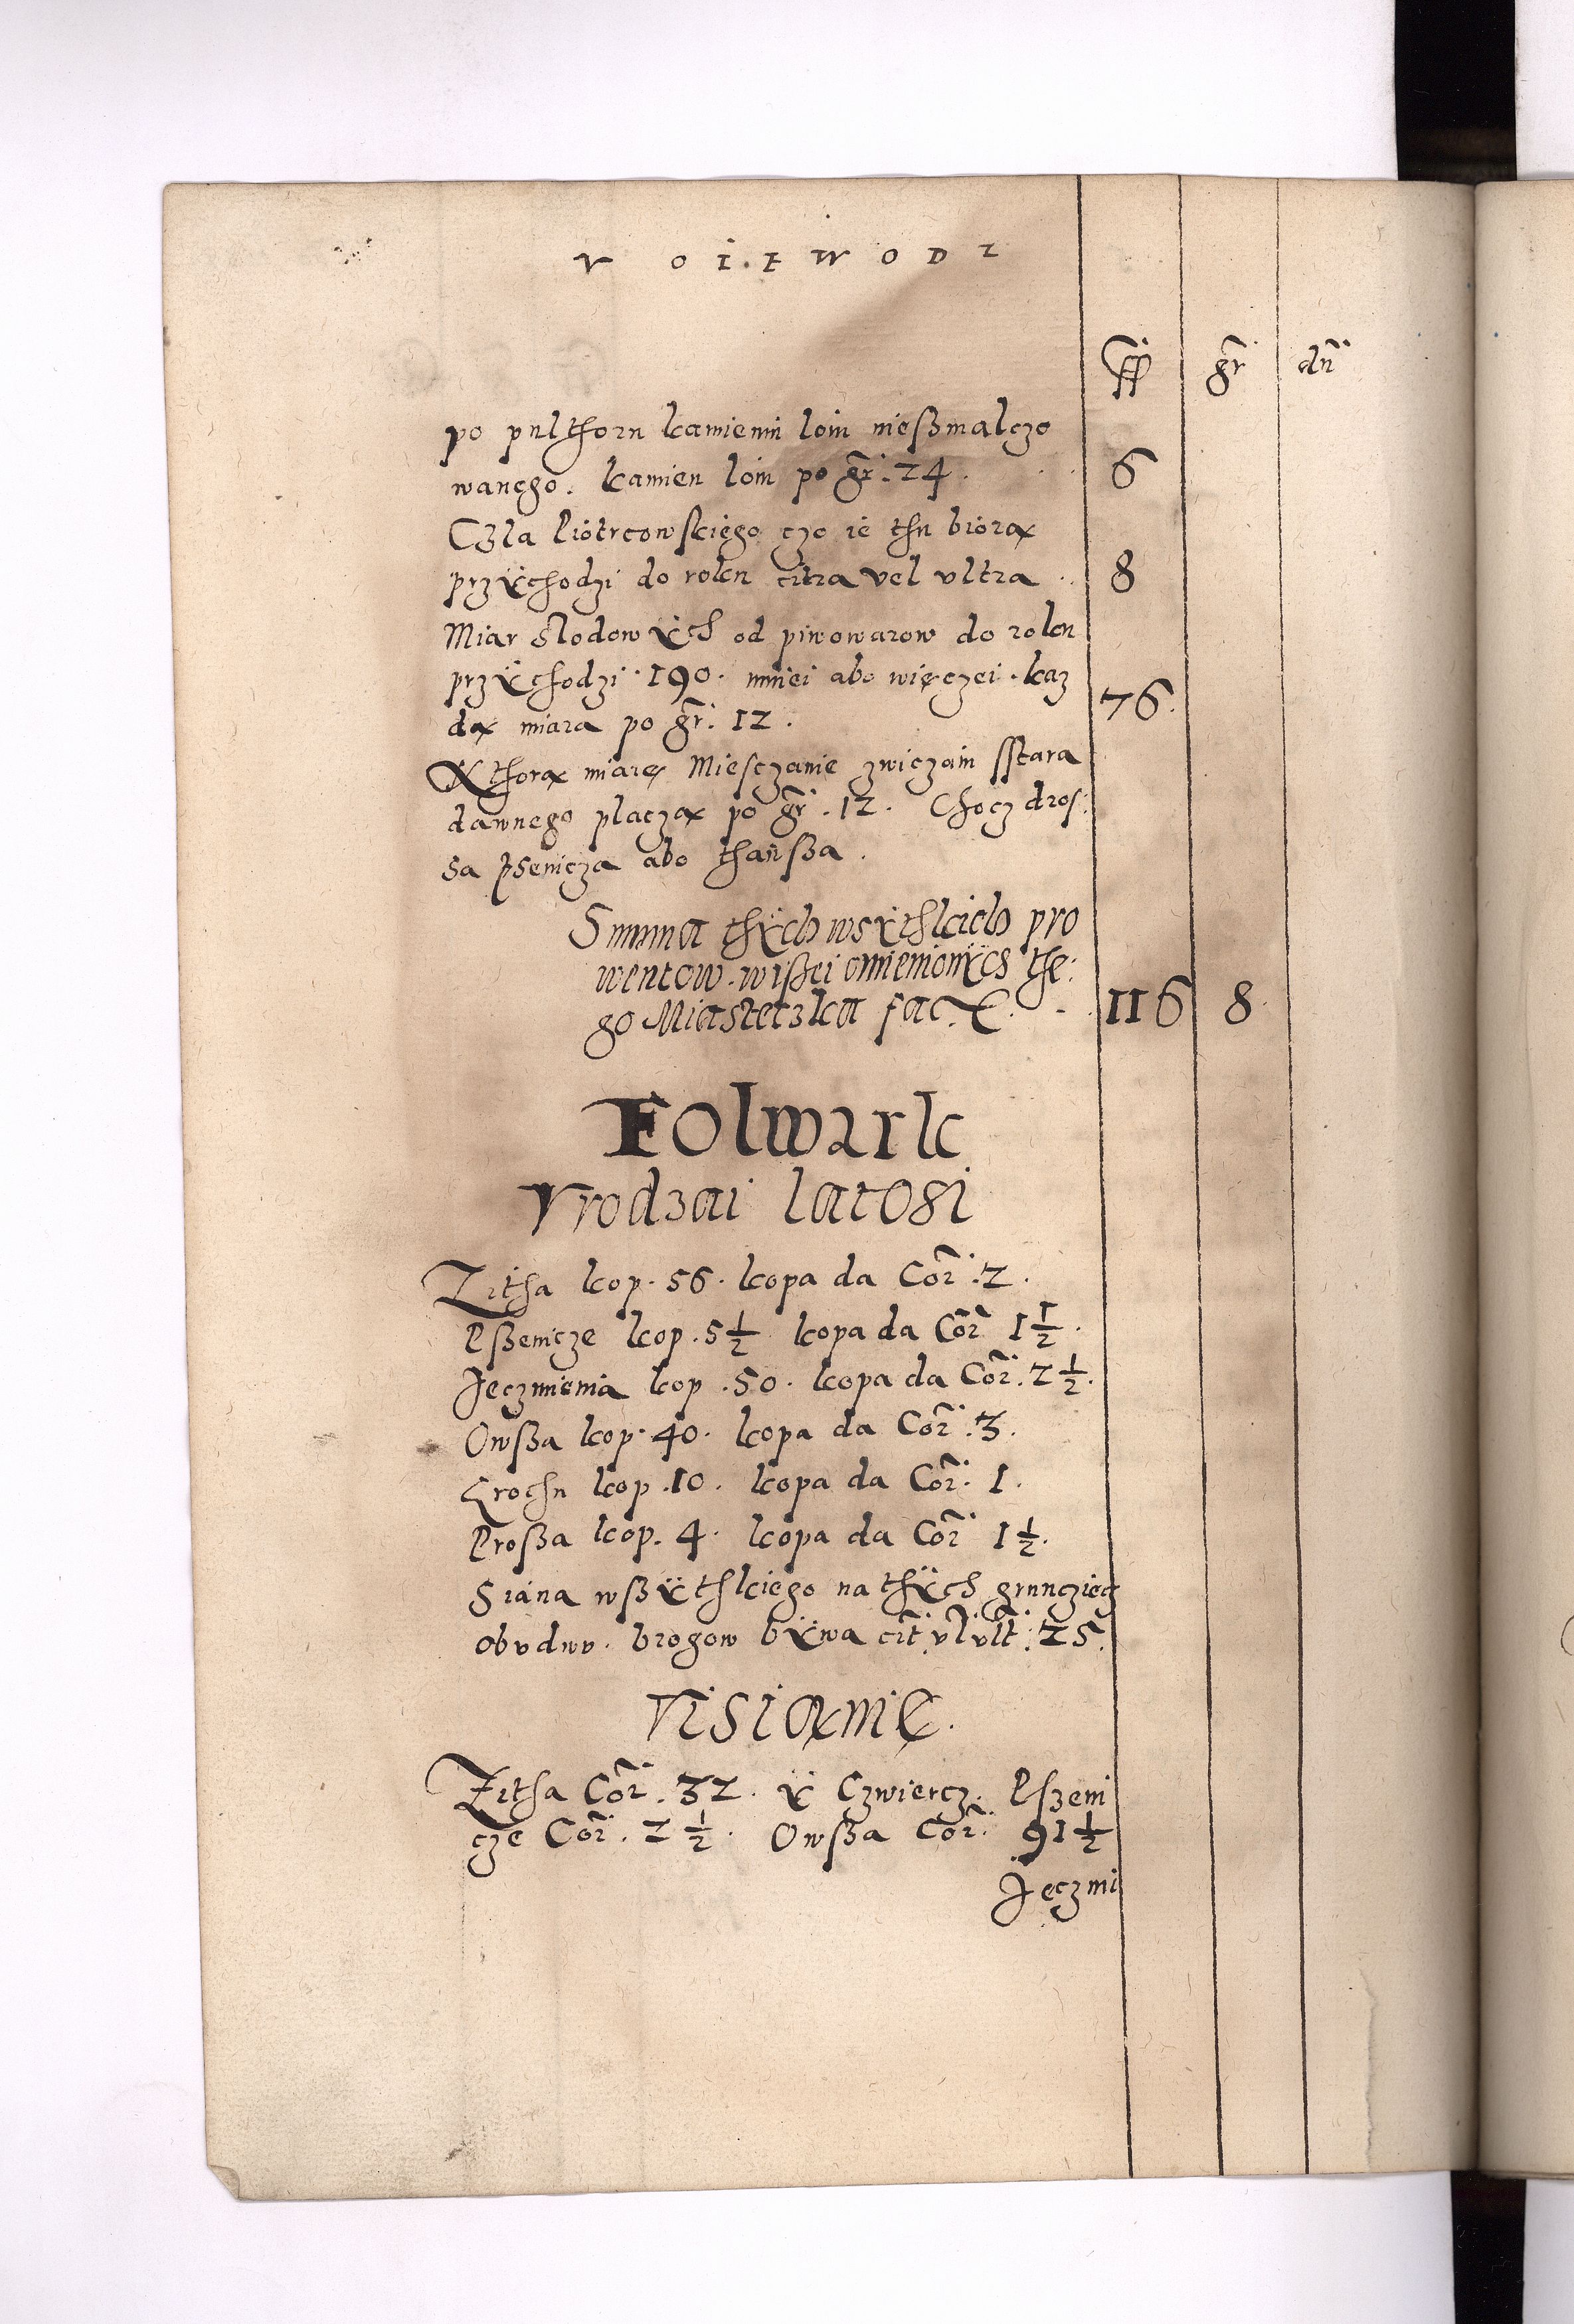 VOIEWODZ
ff gr̃ dn̄
po pulthoru kamieniu loiu nieszmalczo
wanego. kamien loiu po gr̃. 24. 6
Czla Piotrcowskiego czo ie thu biorą
przÿchodzi do roku citra vel vltra. 8
Miar Slodowÿch od piwowarow do roku
przÿchodzi. 190. mniei abo więczei. kaz
dą miara po gr̃. 12. 76.
Kthorą miarę Miesczanie zwiczain sstara
dawnego placzą po gr̃. 12. Chocz dros:
sa psenicza abo thańsza.
Summa thÿch wsÿthkich pro
wentow. wiszei omienionÿch the:
go Miasteczka fac. 116 8
Folwark
Vrodzai latosi
Zitha kop. 56. kopa da Cor̃. 2.
Pszenicze kop. 5 1/2 kopa da Cor̃ 1 1/2.
Jeczmienia kop. 50. kopa da Cor̃. 2 1/2.
Owsza kop. 40. kopa da Cor̃. 3.
Grochu kop. 10. kopa da Cor̃. 1.
Prosza kop. 4. kopa da Cor̃ 1 1/2.
Siana wszÿthkiego na thÿch grunczięch
obudwu. brogow bÿwa cit̃. vl vlt̃: 25.
Visianię.
Zitha Cor̃. 32. ÿ Czwiercz. Pszeni
cze Cor̃. 2 1/2. Owsza Cor̃. 91 1/2
Jęczmi